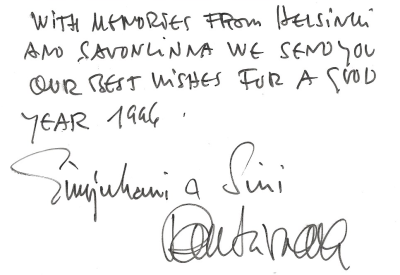 WITH MEMORIES FROM HELSINKI
AND SAVONLINNA WE SEND YOU
OUR BEST WISHES FOR A GOOD
YEAR 1996.
Einojuhani & Sini
Rautavaara